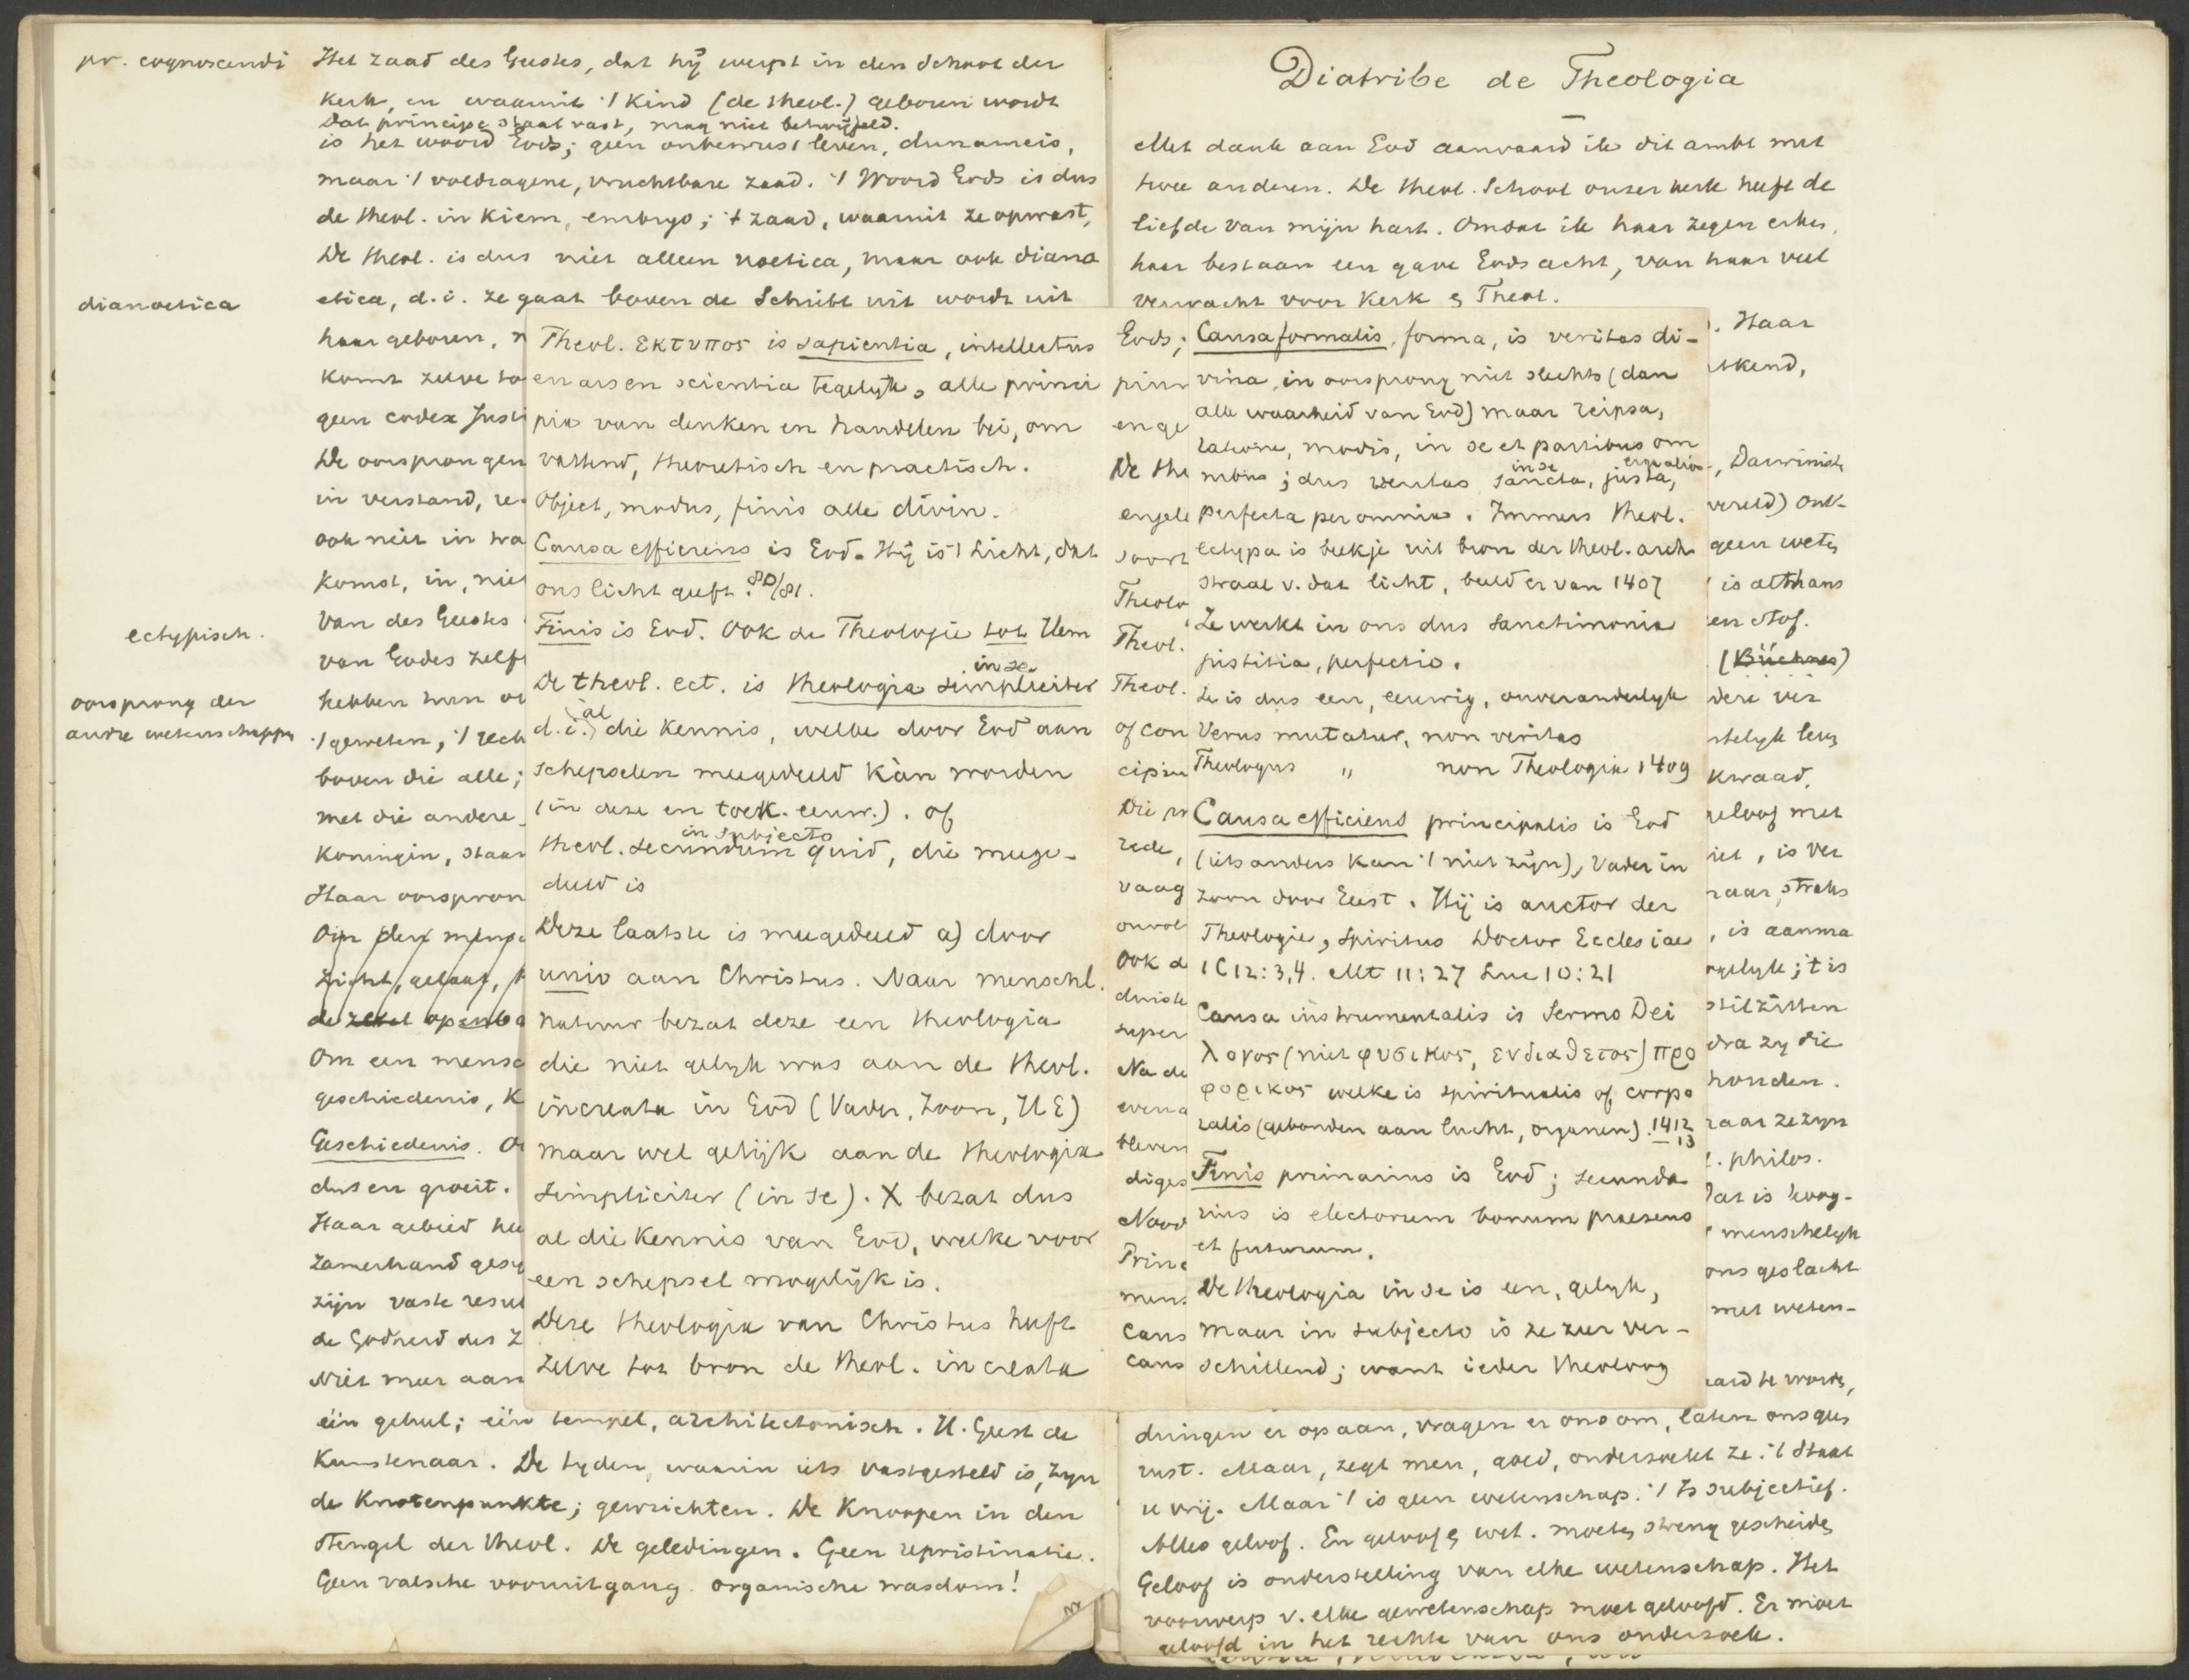 pr. cognoscendi
Het zaad des Geestes, dat hij werpt in den schoot der
kerk, en waaruit 't kind (de theol.) geboren wordt
Dat principe staat vast, mag niet betwijfeld.
is het woord Gods; geen onbewust leven, dunameis,
maar 't voldragene, vruchtbare zaad. 't Woord Gods is dus
de theol. in kiem, embryo; 't zaad, waaruit ze opwast,
De theol. is dus niet alleen noetica, maar ook diano
dianoetica
etica, d.i. ze gaat boven de Schrift uit wordt uit
haar geboren,
komt zelve to
geen codex Justi
De oorsprongen
in verstand, re
ook niet in wa
komst, in, niet
van des Geestes
ectypisch.
van Godes zelf
oorsprong der
andre wetenschappen
hebben hun o
't geweten, 't rech
boven die alle;
met die andere
Koningin, staat
Haar oorspron
Om den mens
Licht, geloof,
de zetel openba
Om een mens
geschiedenis, K
Geschiedenis. O
dus en groeit.
Haar gebied he
zamerhand ges
zijn vaste resul
de Godheid des Z
Niet meer aan
één geheel; één tempel, architectonisch. H. Geest de
Kunstenaar. De tyden, waarin iets vastgesteld is, zyn
de Knotenpunkte; gewrichten. De Knoopen in den
stengel der theol. De geledingen. Geen repristinatie.
Geen valsche vooruitgang. organische wasdom!
Theol. εκτυπος is sapientia, intellectus
en ars en scientia tegelijk, alle princi
pia van denken en handelen bei, om
vattend, theoretisch en practisch.
Object, modus, finis alle divin.
Causa efficiens is God. Hij is 't Licht, dat
ons licht geeft. 80/81.
Finis is God. Ook de Theologie tot Hem
in se
De theol. ect. is theologia simpliciter
al
d.i. die kennis, welke door God aan
schepselen meegedeeld kàn worden
(in deze en toek. eeuw.). of
in subjecto
theol. secundum quid, die mege-
deeld is
Deze laatste is meegedeeld a) door
unio aan Christus. Naar menschl.
natuur bezat deze een theologia
die niet gelyk was aan de theol.
increata in God (Vader, Zoon, HG)
maar wel gelijk aan de theologia
simpliciter (in se). X bezat dus
al die kennis van God, welke voor
een schepsel mogelijk is.
Deze theologia van Christus heeft
zelve tot bron de theol. increata
Diatribe de Theologia
Met dank aan God aanvaard ik dit ambt met
twee anderen. De theol. School onzer kerk heeft de
liefde van mijn hart. Omdat ik haar zegen erken,
haar bestaan een gave Gods acht, van haar veel
verwacht voor Kerk & Theol.
Gods;
en ge
De the
engele
soort
Theolo
Theol.
Theol.
of con
cipiu
Die
rede,
vaag
onvol
Ook d
duist
super
Na de
even a
bleven
diges
Nood
Princ
mens
Caus
Caus
Causa formalis, forma, is veritas di-
vina, in oorsprong niet slechts (dan
alle waarheid van God) maar reipsa,
ratione, modis, in se et partibus om
in se erga alios
nibus; dus veritas sancta, justa,
perfecta per omnia. Immers theol.
ectypa is beekje uit bron der theol. arch.
straal v. dat licht, beeld er van 1407
Ze werkt in ons dus sanctimonia
justitia, perfectio.
Ze is dus een, eeuwig, onveranderlyk
Verus mutatur, non veritas
Theologus " non Theologia 1409
Causa efficiens principalis is God
(iets anders kan 't niet zijn), Vader in
Zoon door Geest. Hij is auctor der
Theologie, Spiritus Doctor Ecclesiae
1 C 12:3,4. Mt 11:27 Luc 10:21
Causa instrumentalis is Sermo Dei
λογος (niet φυσικος, ενδιαθετος) προ
φορικος welke is spiritualis of corpo
ralis (gebonden aan lucht, organen). 1412
13
Finis primarius is God; secunda
rius is electorum bonum praesens
et futurum.
De theologia in se is een, gelyk,
maar in subjecto is ze zeer ver-
schillend; want ieder theoloog
. Haar
tkend,
, Darwinist
wereld) ont-
geen weten
is althans
en stof.
(Büchner)
telyk leven
kwaad,
geloof met
niet, is ver
naar, straks
, is aanma
gelyk; 't is
stilzitten
dra zy die
honden.
naar ze zyn
philos.
Dat is hoog-
menschelyk
ons geslacht
met weten-
aard te worden,
dringen er op aan, vragen er ons om, laten ons ger
rust. Maar, zegt men, goed, onderzoekt ze. 't Staat
u vrij. Maar 't is geen wetenschap. 't Is subjectief.
Alles geloof. En geloof & wet. moeten streng gescheiden
Geloof is onderstelling van elke wetenschap. Het
voorwerp v. elke wetenschap moet geloofd. Er moet
geloofd in het rechte van ons onderzoek.